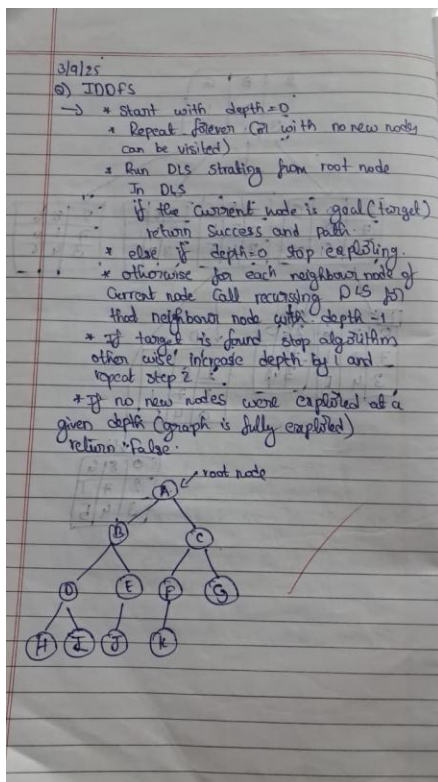 3/9/25
Q) IDDFS
→ * Start with depth=0
* Repeat forever (or with no new nodes
can be visited)
* Run DLS strating from root node
In DLS
if the current node is goal (target)
return success and path.
* else if depth=0 stop exploring.
* otherwise for each neighbour node of
current node call recursing DLS for
that neighbour node with depth -1
* If target is found stop algorithm
other wise increase depth by 1 and
repeat step 2
* If no new nodes were explored at a
given depth (graph is fully explored)
return False.
root node
A
B C
D E F G
H I J K